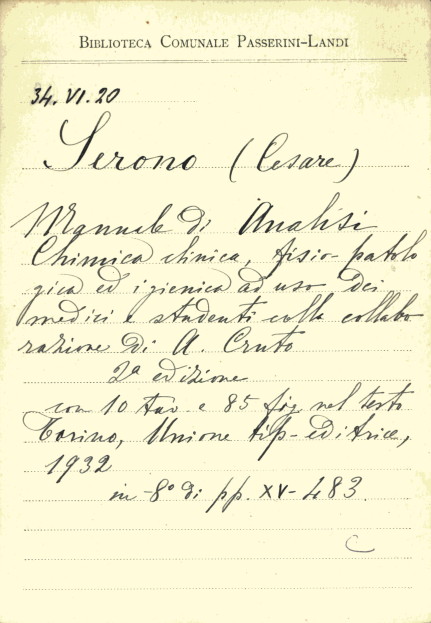 BIBLIOTECA COMUNALE PASSERINI-LANDI
34.VI.20
Serono (Cesare)
Manuale di Analisi
Chimica clinica, fisio-patolo
gica ed igienica ad uso dei
medici e studenti colla collabo
razione di A. Cruto
2ª edizione
con 10 tav. e 85 fig nel testo
Torino, Unione tip-editrice,
1932
in-8° di pp. XV-483.
C